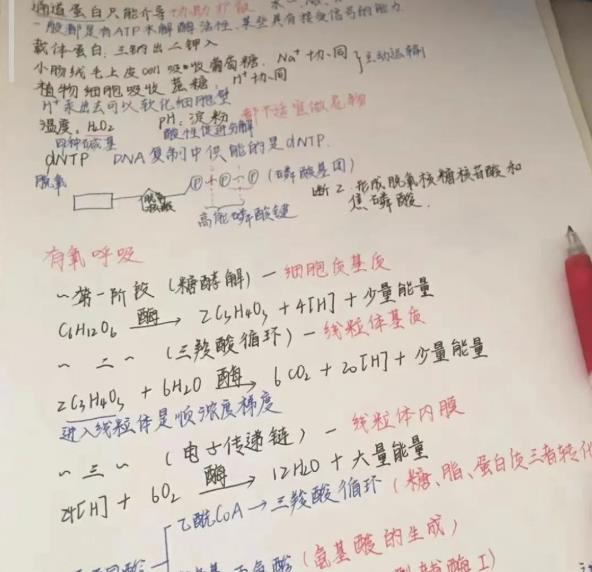 通道蛋白只能介导协助扩散
一般都是有ATP水解酶活性,某些具有接受信号的能力
载体蛋白:三钠出二钾入
小肠绒毛上皮cell吸收葡萄糖,Na⁺协同 } 主动运输
植物细胞吸收蔗糖,H⁺协同
H⁺泵出去可以软化细胞壁
温度:H₂O₂ PH:淀粉 都不适宜做底物
四种碱基 酸性促进分解
dNTP DNA复制中供能的是dNTP.
脱氧 Ⓟ+Ⓟ~Ⓟ (磷酸基团)
断2,形成脱氧核糖核苷酸和
高能磷酸键 焦磷酸.
有氧呼吸
~第一阶段(糖酵解)—细胞质基质
C₆H₁₂O₆ 酶→ 2C₃H₄O₃ + 4[H] + 少量能量
~ 二 ~ (三羧酸循环)—线粒体基质
2C₃H₄O₃ + 6H₂O 酶→ 6CO₂ + 20[H] + 少量能量
进入线粒体是顺浓度梯度
~ 三 ~ (电子传递链)—线粒体内膜
24[H] + 6O₂ 酶→ 12H₂O + 大量能量
乙酰CoA→三羧酸循环(糖、脂、蛋白质三者转化
(氨基酸的生成)